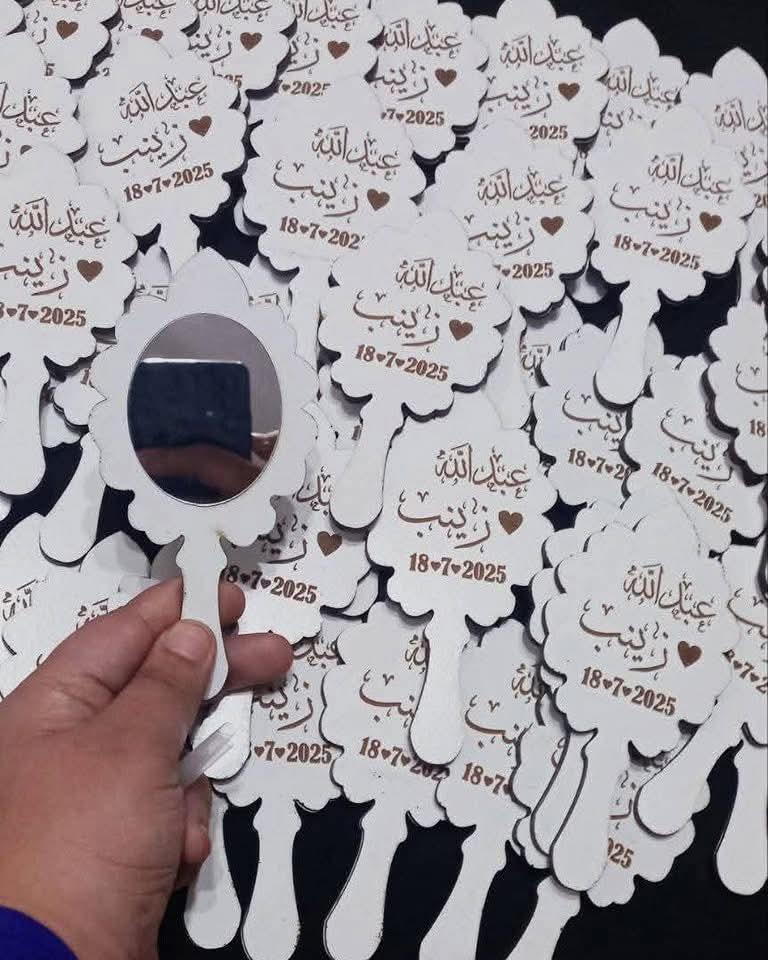 عبد الله
زينب
18♥7♥2025